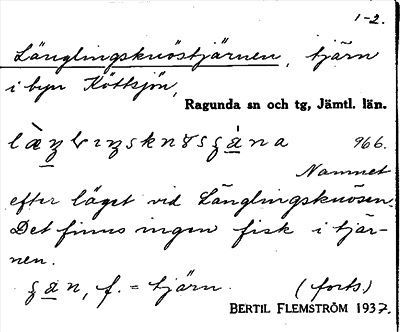 1-2.
Länglingsknöstjärnen, tjärn
i byn Köttsjön,
Ragunda sn och tg, Jämtl. län.
966.
Namnet
efter läget vid Länglingsknösen.
Det finns ingen fisk i tjär-
nen.
f. = tjärn. (forts)
BERTIL FLEMSTRÖM 1937.